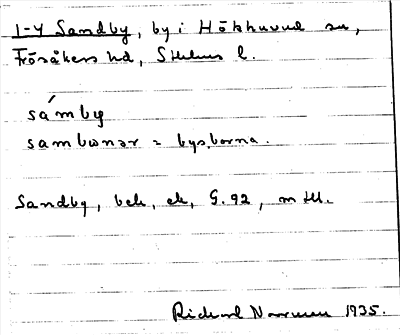 1-4 Sandby, by i Hökhuvud sn,
Frösåkers hd, Sthlms l.
sámby
sambωnər = bysborna.
Sandby, bek, ek, G. 92, m fll.
Richard Norrman 1935.